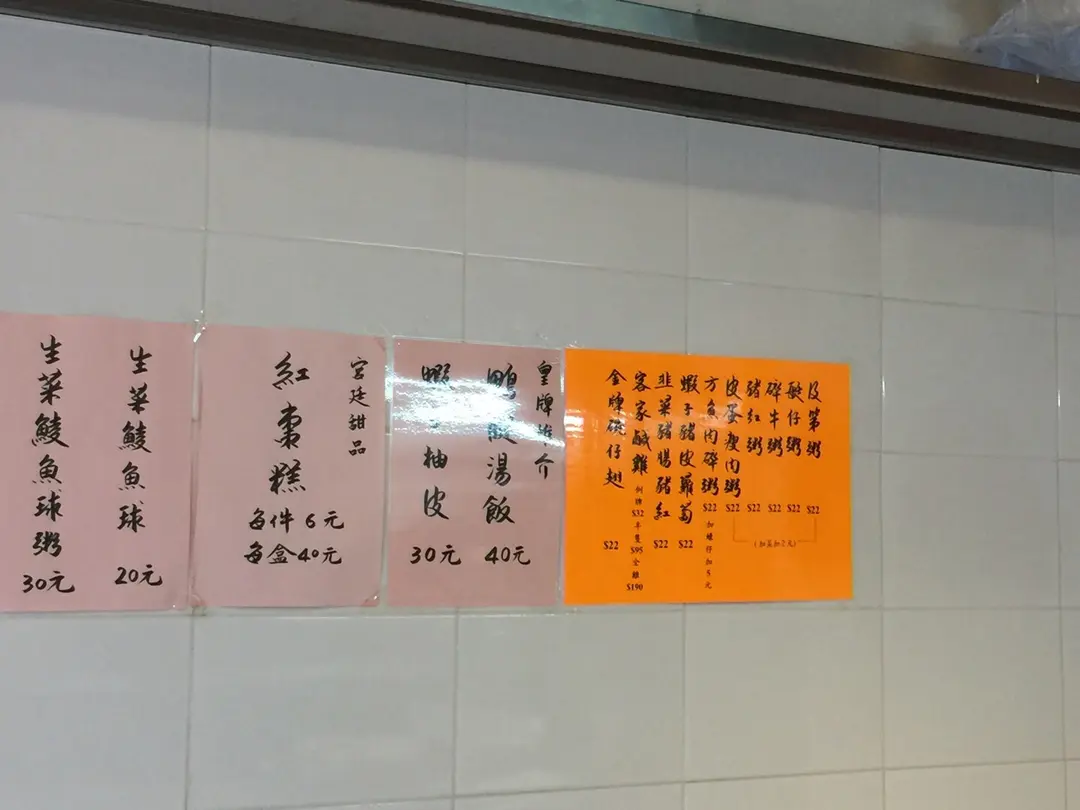 及第粥 $22
艇仔粥 $22
碎牛粥 $22
豬紅粥 $22
皮蛋瘦肉粥 $22
方魚肉碎粥 $22
蝦子豬皮蘿蔔 $22
韭菜豬腸豬紅 $22
客家鹹雞 例牌 $32 半隻 $95 全雞 $190
金牌碗仔翅 $22
皇牌推介
鴨腿湯飯 40元
蝦子柚皮 30元
宮廷甜品
紅棗糕
每件6元
每盒40元
生菜鯪魚球 20元
生菜鯪魚球粥 30元